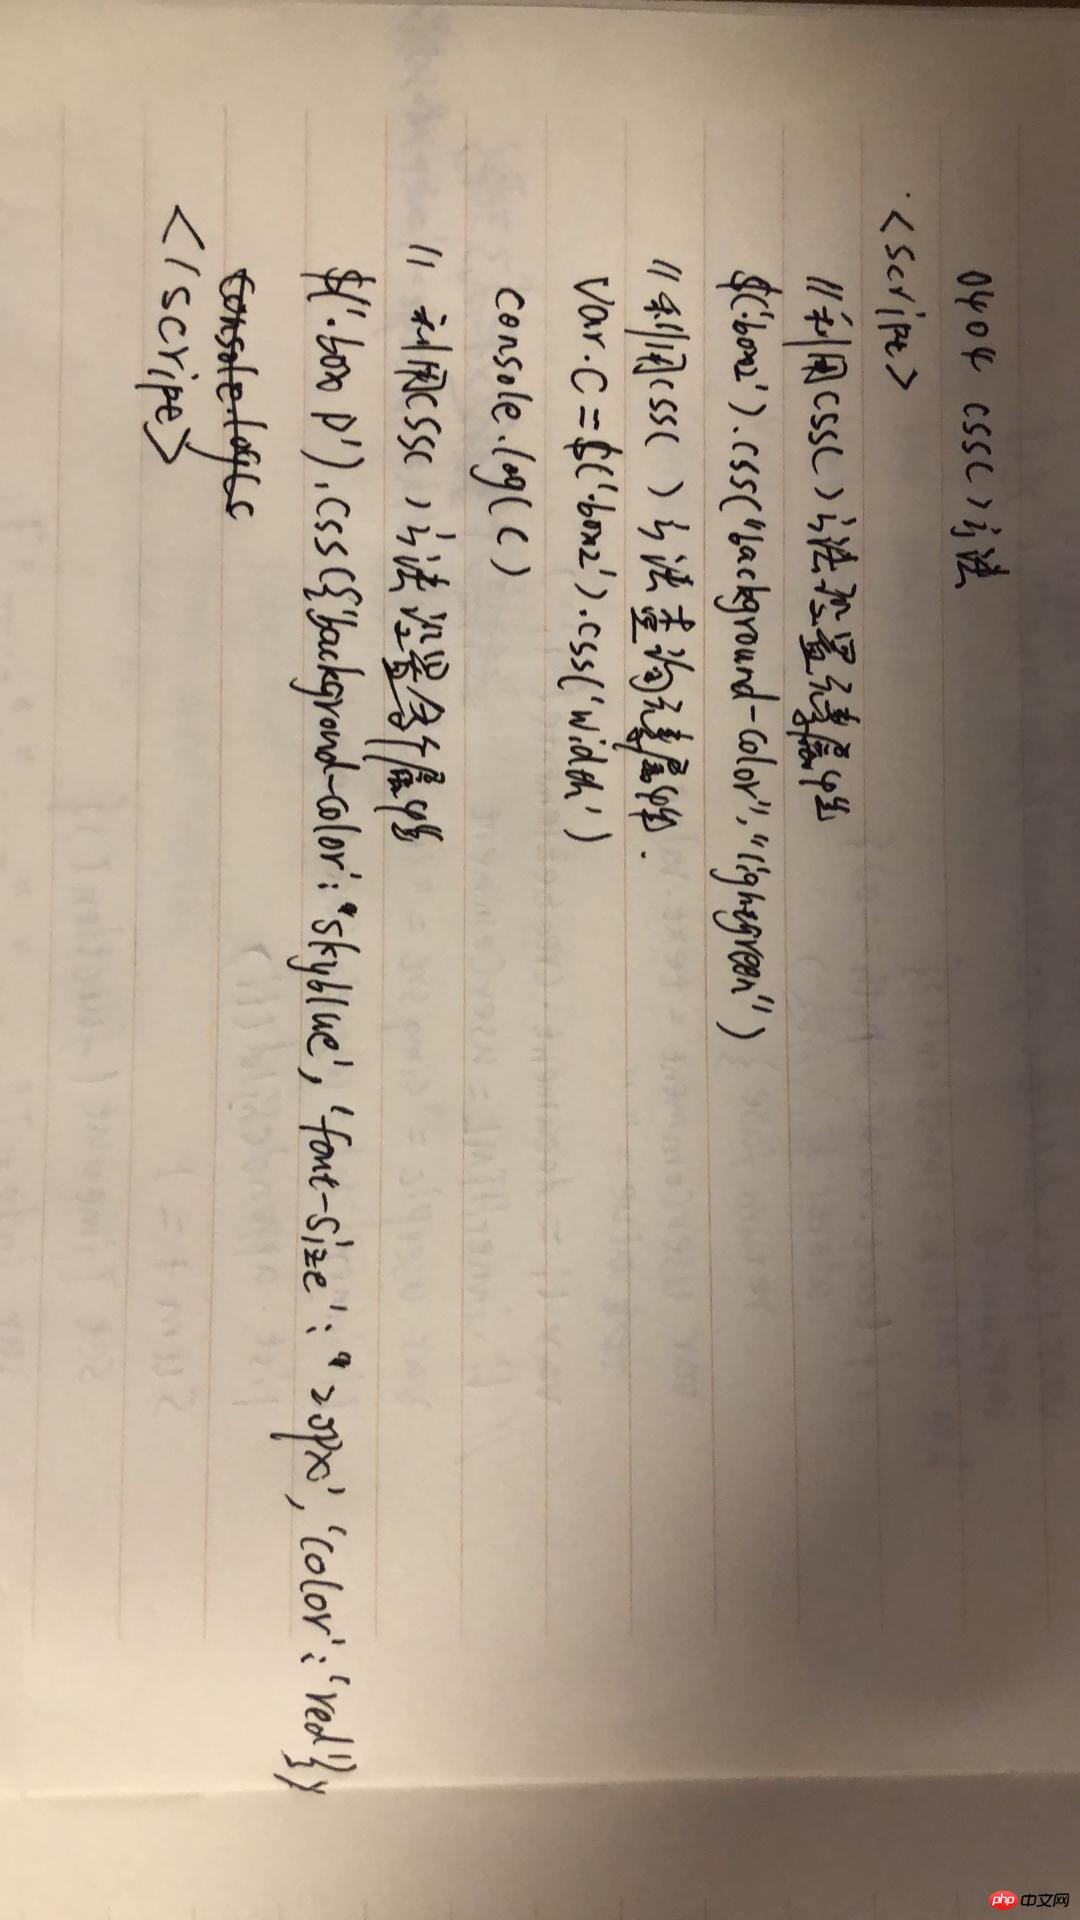 0404 css()方法
<script>
//利用css()方法设置元素属性
$('.box2').css("background-color","lightgreen")
//利用css()方法查询元素属性.
Var.C=$('.box2').css('width')
console.log(C)
//利用css()方法设置多个属性
$('.box p').css({'background-color':"skyblue','font-size':"20px','color':'red'})
</script>
php中文网